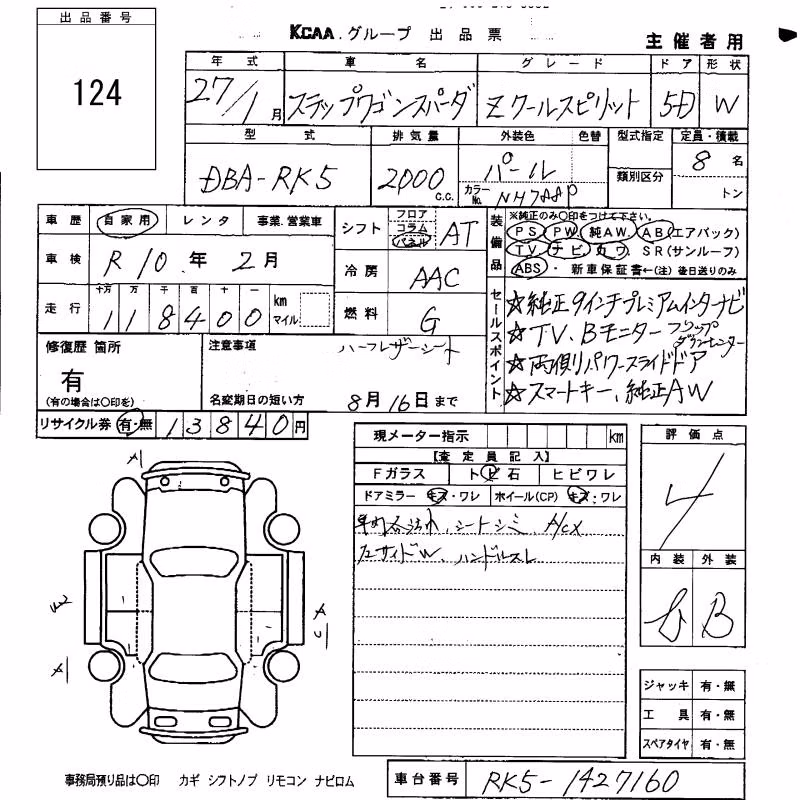 出品番号
124
KCAA グループ 出品票
主催者用
年式 車名 グレード ドア 形状
27/1月 ステップワゴンスパーダ Zクールスピリット 5D W
型式 排気量 外装色 色替 型式指定 定員・積載
DBA-RK5 2000 C.C. パール 類別区分 8名
カラーNo. NH788P トン
車歴 自家用 レンタ 事業.営業車 シフト フロア コラム パネル AT
装備品 ※純正のみ〇印をつけて下さい。
PS PW 純AW AB(エアバック)
TV ナビ カワ SR(サンルーフ)
ABS・新車保証書←(注) 後日送りのみ
車検 R10年2月 冷房 AAC
走行 十万 万 千 百 十 一
118400 km マイル 燃料 G
セールスポイント
☆純正9インチプレミアムインターナビ
☆TV、Bモニター フリップダウンモニター
☆両側パワースライドドア
☆スマートキー、純正AW
修復歴 箇所
有
(有の場合は〇印を)
注意事項 ハーフレザーシート
名変期日の短い方 8月16日まで
リサイクル券 有・無 13840円
現メーター指示 km
【査定員記入】
Fガラス トビ石 ヒビワレ
ドアミラー キズ・ワレ ホイール(CP) キズ・ワレ
シートシミ
ハンドルスレ
評価点
4
内装 外装
B
ジャッキ 有・無
工具 有・無
スペアタイヤ 有・無
A1
W2
A1
A
U
事務局預り品は〇印 カギ シフトノブ リモコン ナビロム
車台番号 RK5-1427160